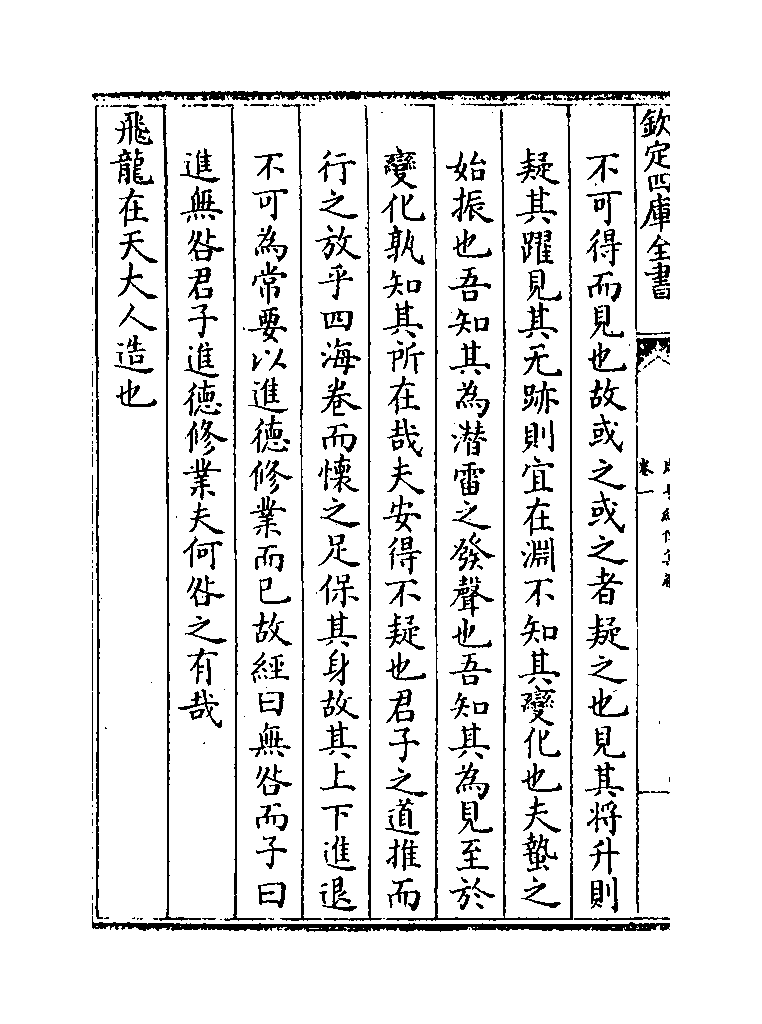 欽定四庫全書
卷一
不可得而見也故或之或之者疑之也見其将升則
疑其躍見其无跡則宜在淵不知其變化也夫蟄之
始振也吾知其為潜雷之發聲也吾知其為見至於
變化孰知其所在哉夫安得不疑也君子之道推而
行之放乎四海卷而懐之足保其身故其上下進退
不可為常要以進德修業而已故經曰無咎而子曰
進無咎君子進德修業夫何咎之有哉
飛龍在天大人造也